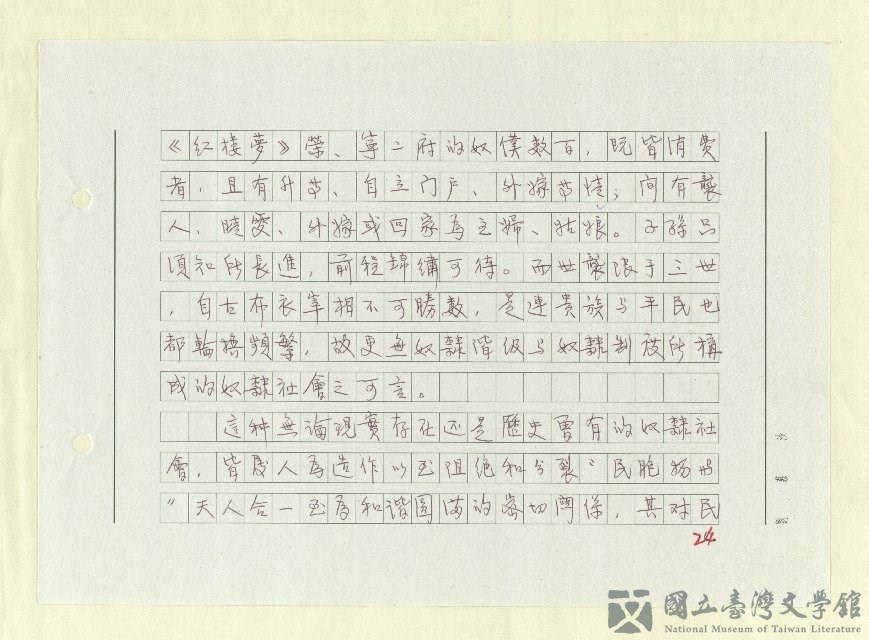 《红楼夢》榮、寧二府的奴僕数百，既皆消費
者，且有升苗、自立门户、外嫁苗情；间有襲
人、晴雯、外嫁或回家為主婦、姑娘。子孫只
須知所長進，前程錦繡可待。而世襲限于三世
，自古布衣宰相不可勝数，是連貴族与平民也
都輪換頻繁，故更無奴隸階级与奴隸制度所構
成的奴隸社會之可言。
這种無論現實存在还是歷史曾有的奴隸社
會，皆屬人為造作以至阻绝和分裂〝民胞物与
〞天人合一至為和谐圆滿的密切関係，其对民
24
國立臺灣文學館
National Museum of Taiwan Literature